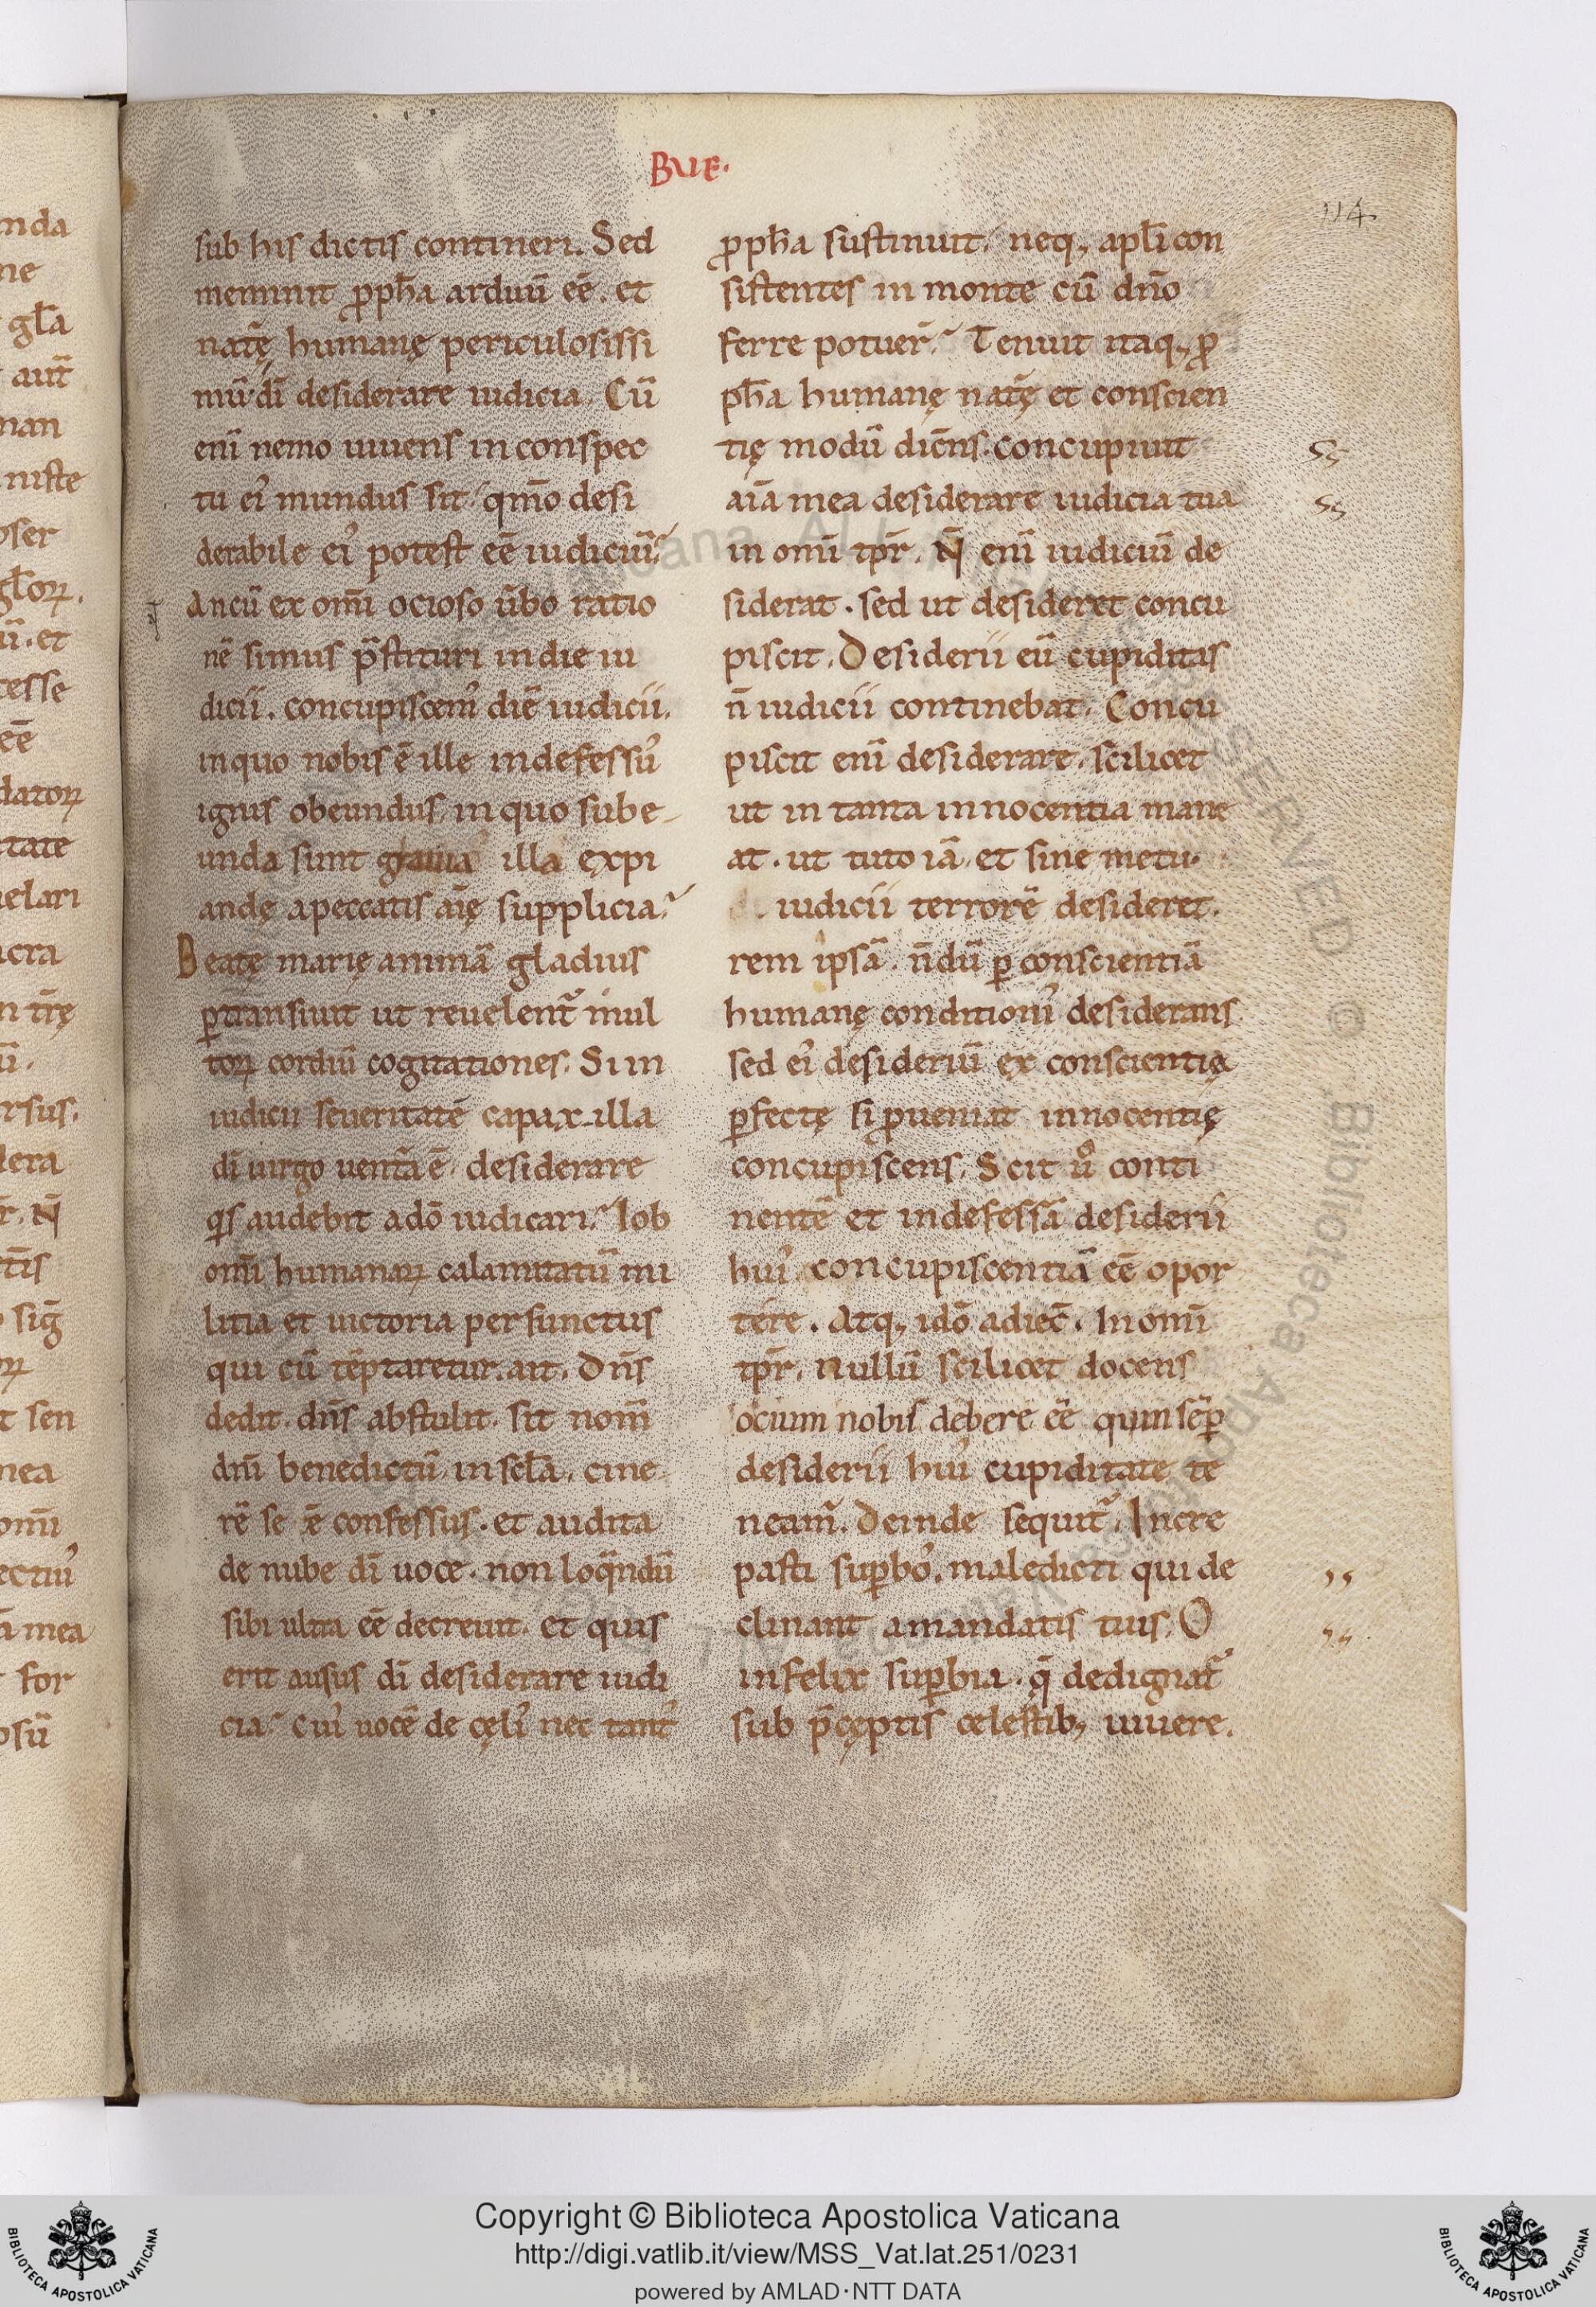 BUE.
114
sub his dictis contineri. Sed
meminit ꝓph̄a arduū eē. et
nat̄ę humanę periculosissi
mū di͞ desiderare iudicia. Cū
eni͞ nemo uiuens in conspec
tu ei᾽ mundus sit, qm̄o desi
derabile ei᾽ potest eē iudiciū?
An cū ex om̄i ocioso ūbo ratio
nē simus p̄stituri in die iu
dicii. concupiscem᾽ diē iudicii.
in quo nobis ē ille indefessu᾽
ignis obeundus, in quo sube-
unda sunt grauia illa expi
andę a peccatis aīę supplicia?
Beatę marię animā gladius
ꝑtransiuit ut reuelent᷑ mul
toꝝ cordiū cogitationes. Si in
iudicii seueritatē capax illa
di͞ uirgo uent̄a ē, desiderare
qͥs audebit a dō iudicari? Iob
om̄i humanaꝝ calamitatū mi
litia et uictoria perfunctus
qui cū tēptaretur. ait. Dn̄s
dedit. dn̄s abstulit. sit nom̄
dn̄i benedictū in scl̄a. cine-
rē se ē confessus. et audita
de nube di͞ uoce. non loq̄ndū
sibi ultra eē decreuit. et quis
erit ausus di͞ desiderare iudi
cia? Cui᾽ uocē de cęli᾽ nec tant᾽
ꝓph̄a sustinuit, neq; apl̄i con
sistentes in monte cū dn̄o
ferre potuer̄? Tenuit itaq; ꝓ
ph̄a humanę nat̄ę et conscien
tię modū dicēns. concupiuit
aīa mea desiderare iudicia tua
in om̄i tp̄r. N̄ eni͞ iudiciū de
siderat. sed ut desideret concu
piscit. Desiderii eū cupiditas
n̄ iudicii continebat. Concu
piscit eni͞ desiderare. scilicet
ut in tanta innocentia mane
at. ut tuto iā. et sine metu
iudicii terrorē desideret.
rem ipsā. n̄dū ꝑ conscientiā
humanę condition᾽ desiderans
sed ei᾽ desideriū ex conscientia
ꝑfectę si ꝓueniat innocentię
concupiscens. Scit uͦ conti
nentē et indefessā desiderii
hui᾽ concupiscentiā eē opor
tere. Atq; idō adiec̄. In om̄i
tp̄r. Nullū scilicet docens
ocium nobis debere eē quin sēꝑ
desiderii hui᾽ cupiditate te
neam᷑. Deinde sequit᷑. Incre
pasti suꝑbo᾽. maledicti qui de
clinant a mandatis tuis. O
infelix suꝑbia. q̄ dedignat᷑
sub p̄ceptis celestib; uiuere.